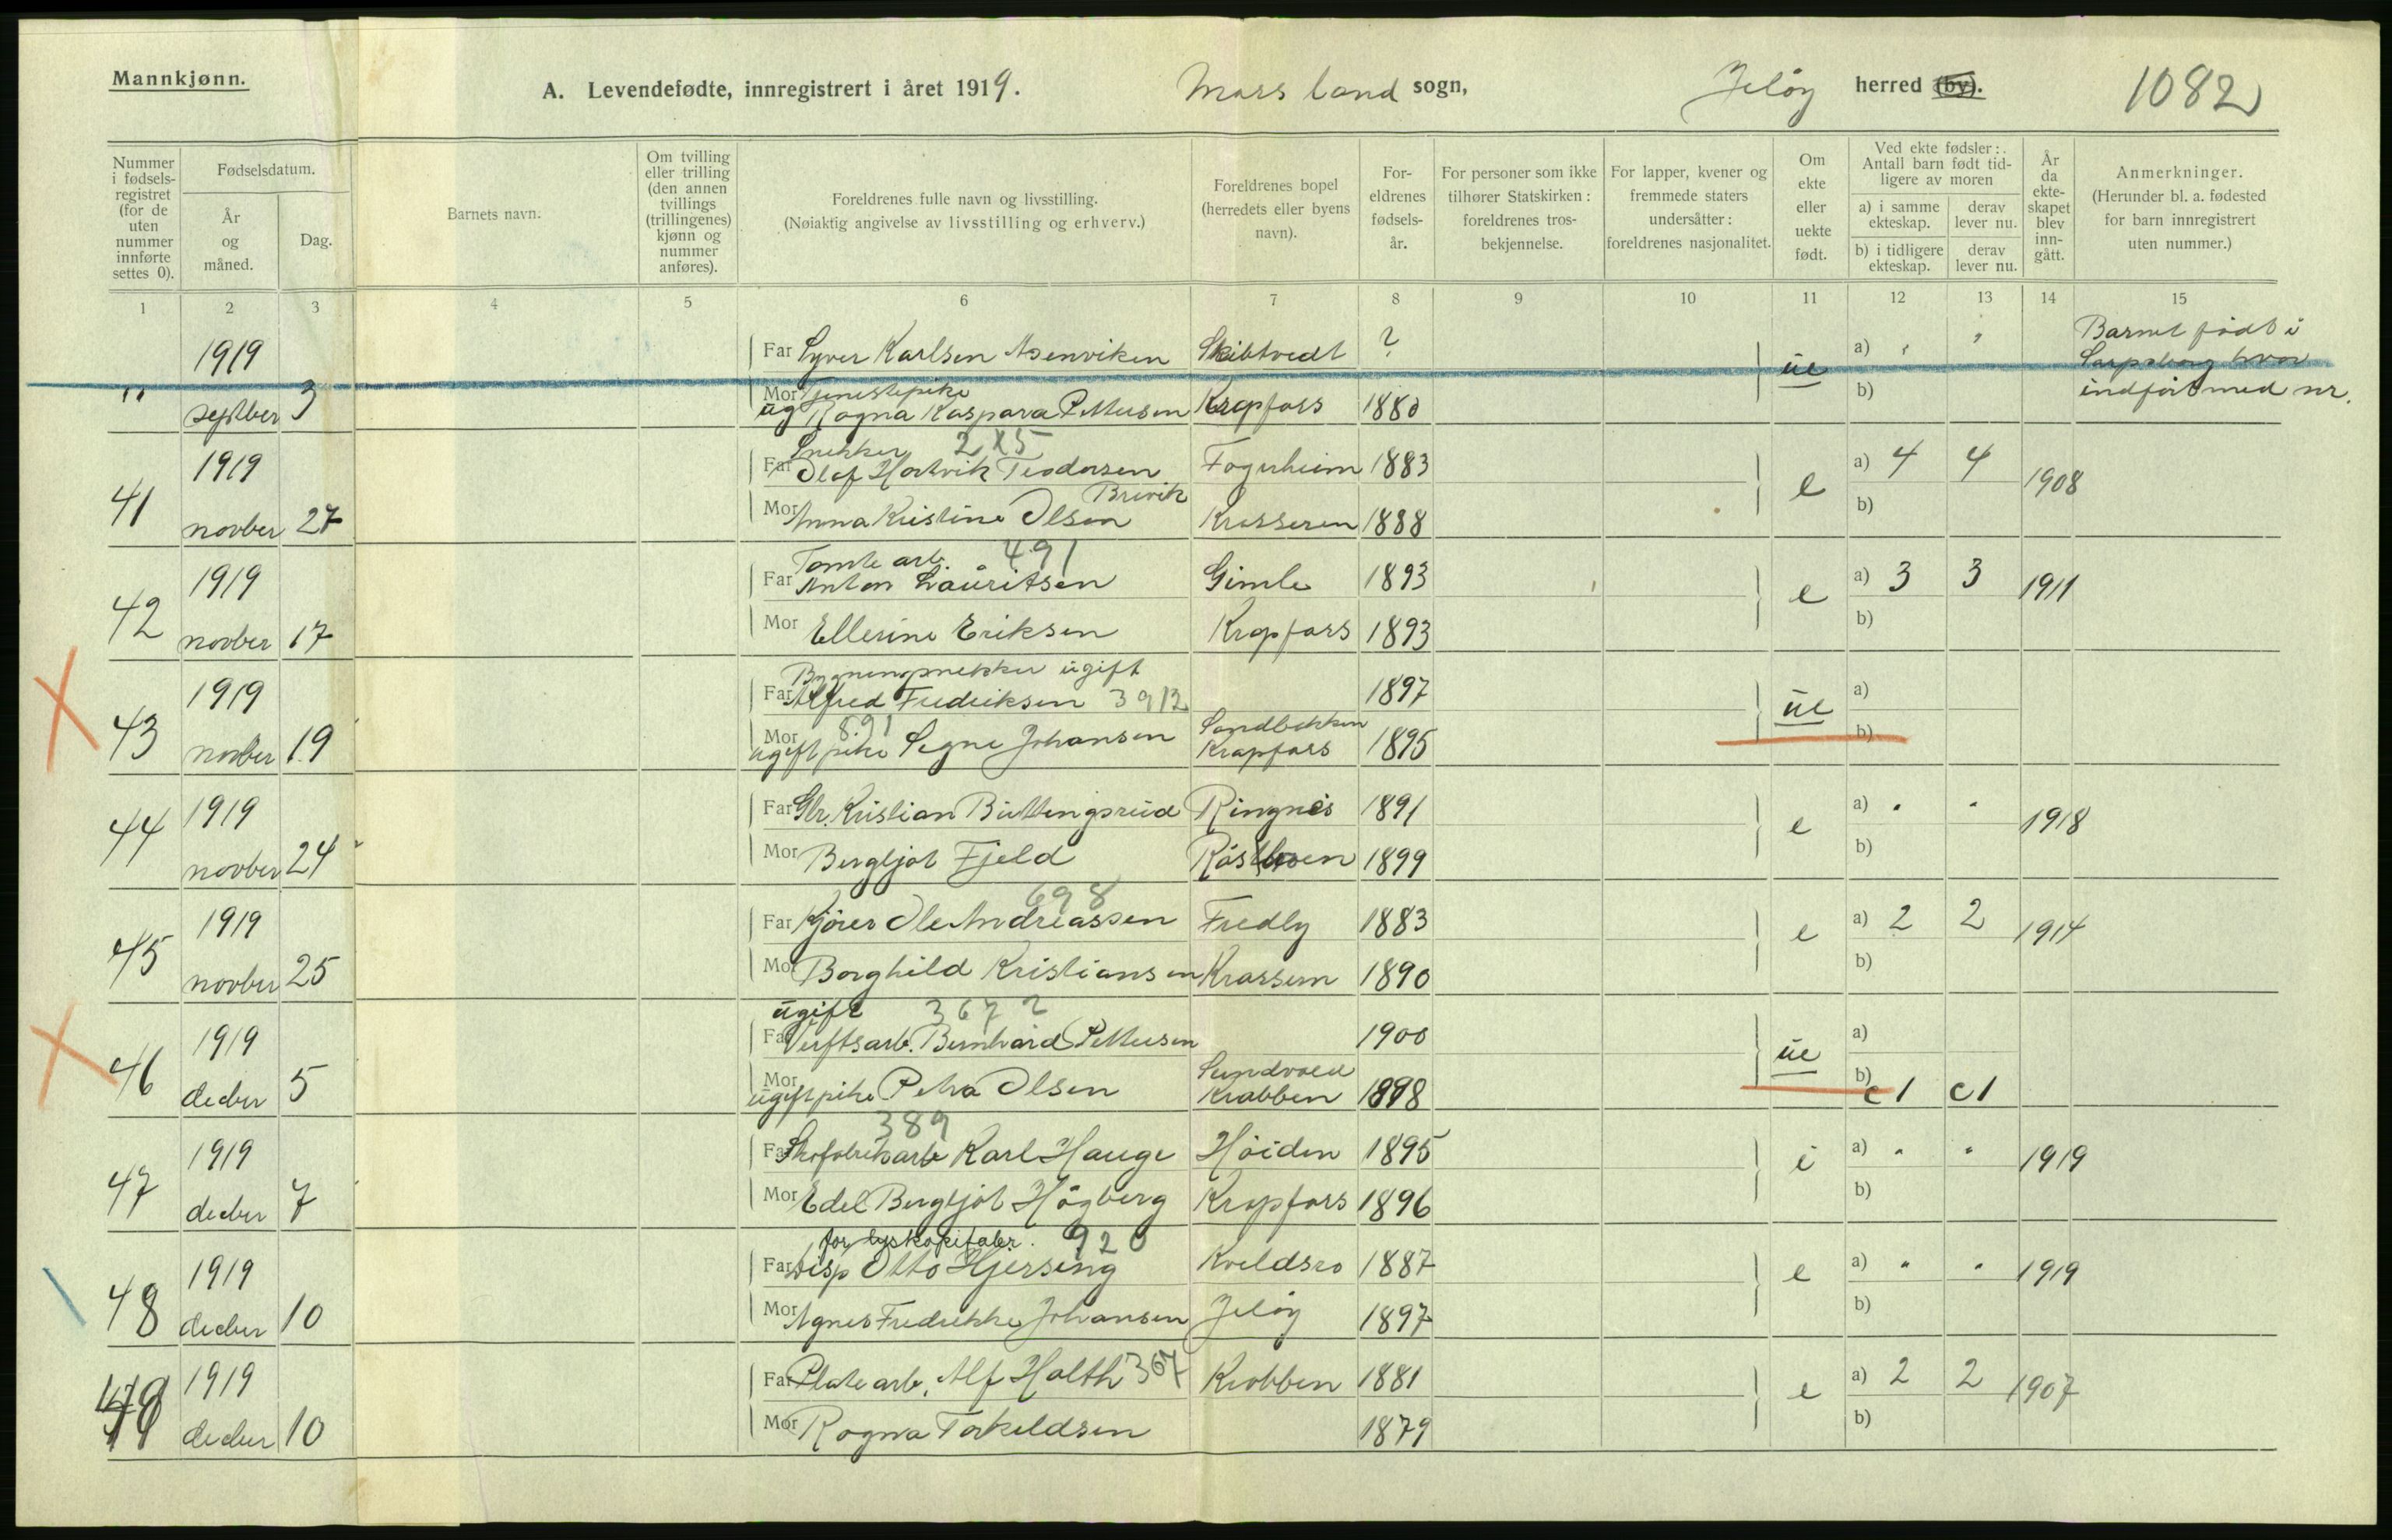 Mannkjønn.
A. Levendefødte, innregistrert i året 1919. Moss land sogn, Jeløy herred (by). 1082
Nummer i fødsels-registret (for de uten nummer innførte settes 0).
Fødselsdatum.
År og måned.
Dag.
Barnets navn.
Om tvilling eller trilling (den annen tvillings (trillingenes) kjønn og nummer anføres).
Foreldrenes fulle navn og livsstilling.
(Nøiaktig angivelse av livsstilling og erhverv.)
Foreldrenes bopel (herredets eller byens navn).
For-eldrenes fødsels-år.
For personer som ikke tilhører Statskirken: foreldrenes tros-bekjennelse.
For lapper, kvener og fremmede staters undersåtter: foreldrenes nasjonalitet.
Om ekte eller uekte født.
Ved ekte fødsler: Antall barn født tid-ligere av moren
a) i samme ekteskap.
derav lever nu.
b) i tidligere ekteskap.
derav lever nu.
År da ekte-skapet blev inn-gått.
Anmerkninger.
(Herunder bl. a. fødested for barn innregistrert uten nummer.)
1 2 3 4 5 6 7 8 9 10 11 12 13 14 15
1919 Far Syver Karlsen Skibtvedt ? a) " " Barnet født i
Sarpsborg hvor
Tjenestepike
" septber 3 Mor ug Ragna Kaspara Pettersen Krapfoss 1880 ue b) indført med nr.
Snekker 2x5
1919 Far Olaf Hartvik Teodorsen Fagerheim 1883 a) 4 4 1908
Brevik
41 novber 27 Mor Anna Kristine Olsen Krosseren 1888 e b)
Tomte arb. 491
1919 Far Anton Lauritsen Gimle 1893 a) 3 3 1911
42 novber 17 Mor Ellerine Eriksen Krapfoss 1893 e b)
Bygningsnekker ugift
1919 Far Alfred Fredriksen 3912 1897 ue a)
891 Sandbekken
43 novber 19 Mor ugift pike Signe Johansen Krapfoss 1895 b)
1919 Far Gbr. Kristian Büttingsrud Ringnes 1891 a) " " 1918
44 novber 24 Mor Bergljot Fjeld 1899 e b)
698
1919 Far Kjører Ole Andreassen Fredly 1883 a) 2 2 1914
45 novber 25 Mor Borghild Kristiansen Krossern 1890 e b)
ugift 3672
1919 Far Verftsarb. Bernhard Pettersen 1900 ue a)
Sundvold
46 decber 5 Mor ugift pike Petra Olsen Krabben 1898 b) c1 c1
389
1919 Far Skofabrikarb Karl Hauge Høiden 1895 a) " " 1919
47 decber 7 Mor Edel Bergljot Högberg Krapfoss 1896 e b)
920
1919 Far Disp Otto Gjersing Kveldsro 1887 a) " " 1919
48 decber 10 Mor Agnes Fredrikke Johansen Jeløy 1897 e b)
1919 Far Plate arb. Alf Holth 367 Krabben 1881 a) 2 2 1907
49 decber 10 Mor Ragna Torkeldsen 1879 e b)